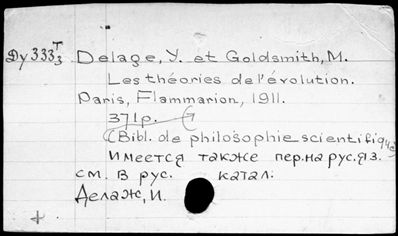 Dy 333 T/3 Delage, Y. et Goldsmith, M.
Les théories de l'évolution.
Paris, Flammarion, 1911.
371 p.
(Bibl. de philosophie scientifique)
Имеется также пер. на рус. яз.
см. в рус. катал:
Делаж, И.